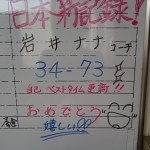 日本新記録!
岩井ナナ コーチ
34-73
自己ベストタイム更新!!
おめでとう
嬉しい